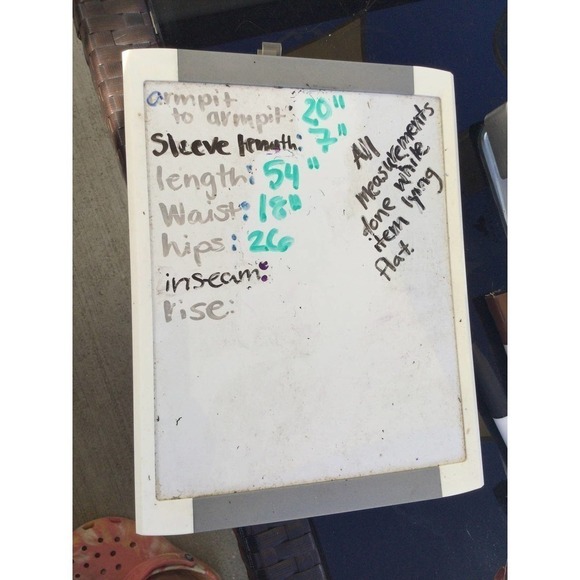 armpit
to armpit: 20"
Sleeve length: 7"
length: 54"
Waist: 18"
hips: 26
inseam:
rise:
All
measurements
done while
item lying
flat.